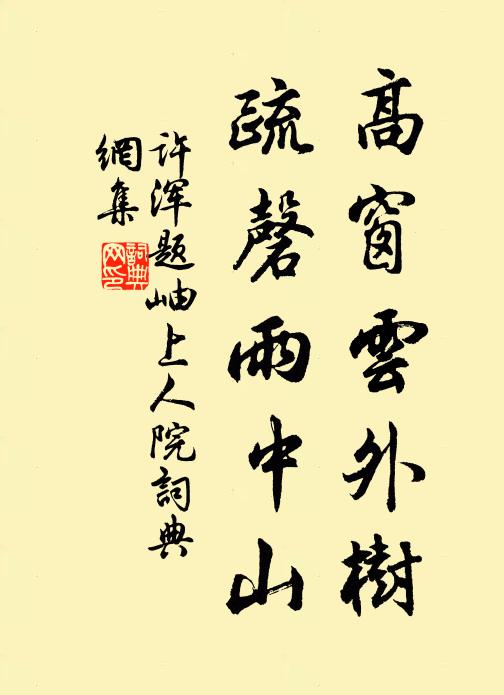 高窗雲外樹
疏磬雨中山
许浑题岫上人院詞典
網集
詞典
网印